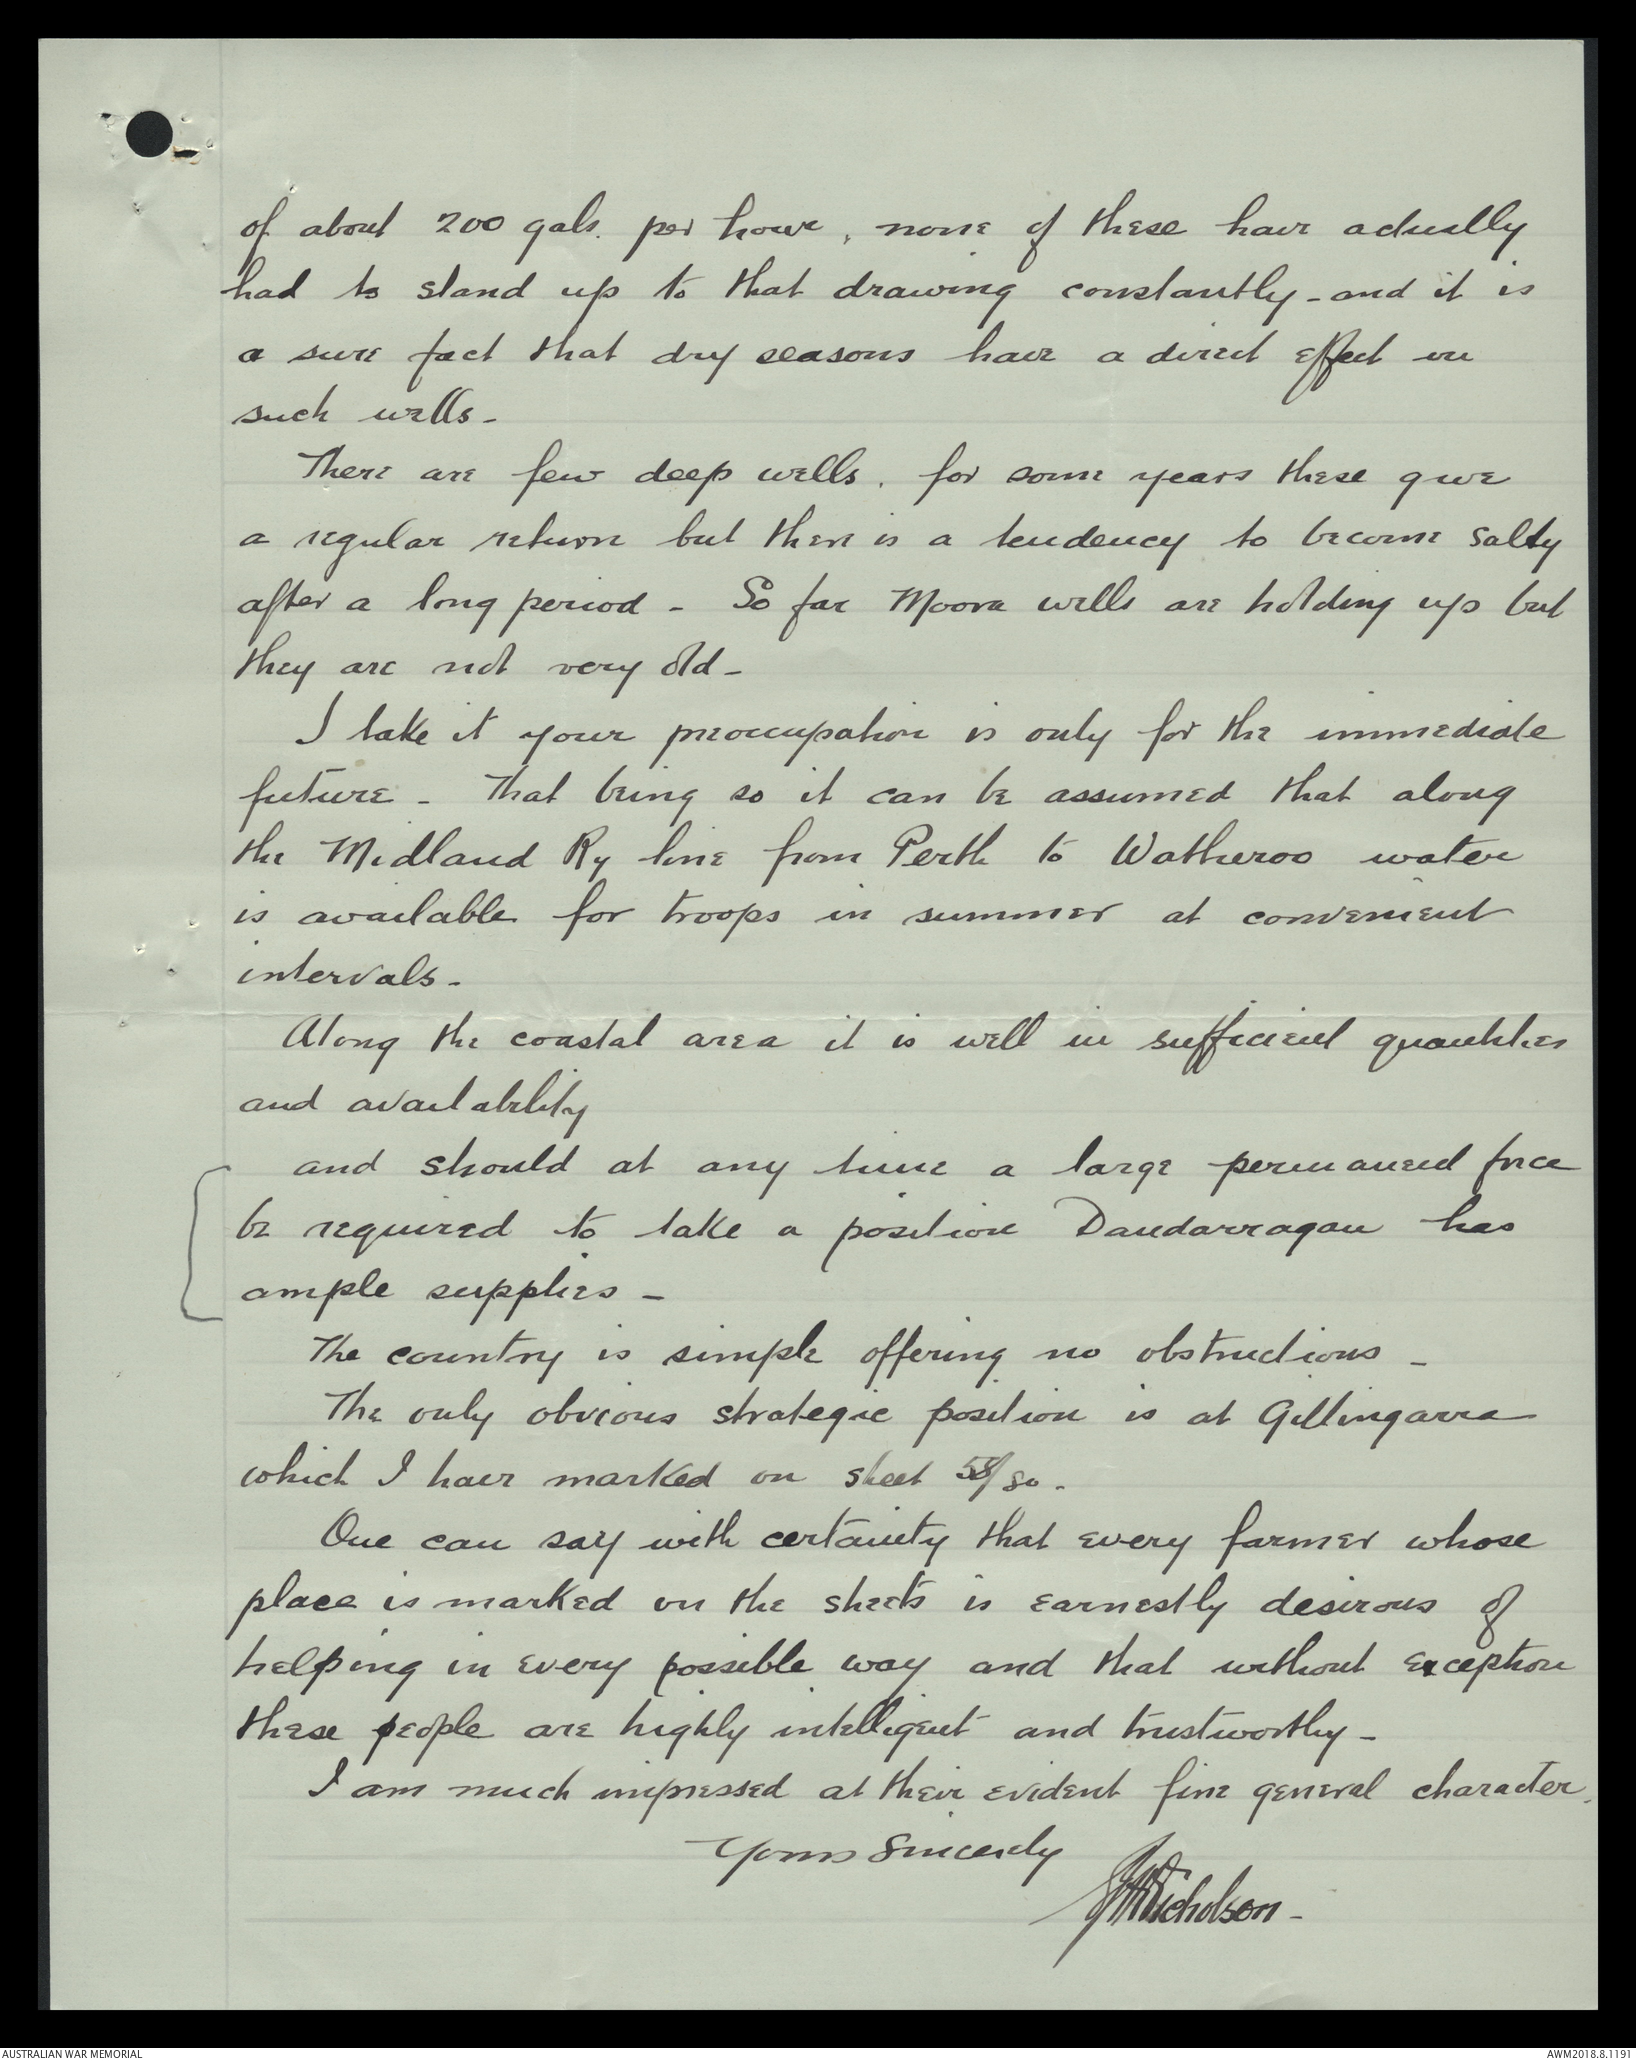 of about 200 gals. per hour, none of these have actually
had to stand up to that drawing constantly - and it is
a sure fact that dry seasons have a direct effect on
such wells -
There are few deep wells. for some years these give
a regular return but there is a tendency to become salty
after a long period - So far Moora wells are holding up but
they are not very old -
I take it your preoccupation is only for the immediate
future - That being so it can be assumed that along
the Midland Ry line from Perth to Watheroo water
is available for troops in summer at convenient
intervals -
Along the coastal area it is well in sufficient quantities
and availability
and should at any time a large permanent force
be required to take a position Dandarragan has
ample supplies -
The country is simple offering no obstructions -
The only obvious strategic position is at Gillingarra
which I have marked on sheet 58/80 -
One can say with certainty that every farmer whose
place is marked on the sheets is earnestly desirous of
helping in every possible way and that without exception
these people are highly intelligent and trustworthy -
I am much impressed at their evident fine general character.
Yours Sincerely
Nicholson -
AUSTRALIAN WAR MEMORIAL
AWM2018.8.1191